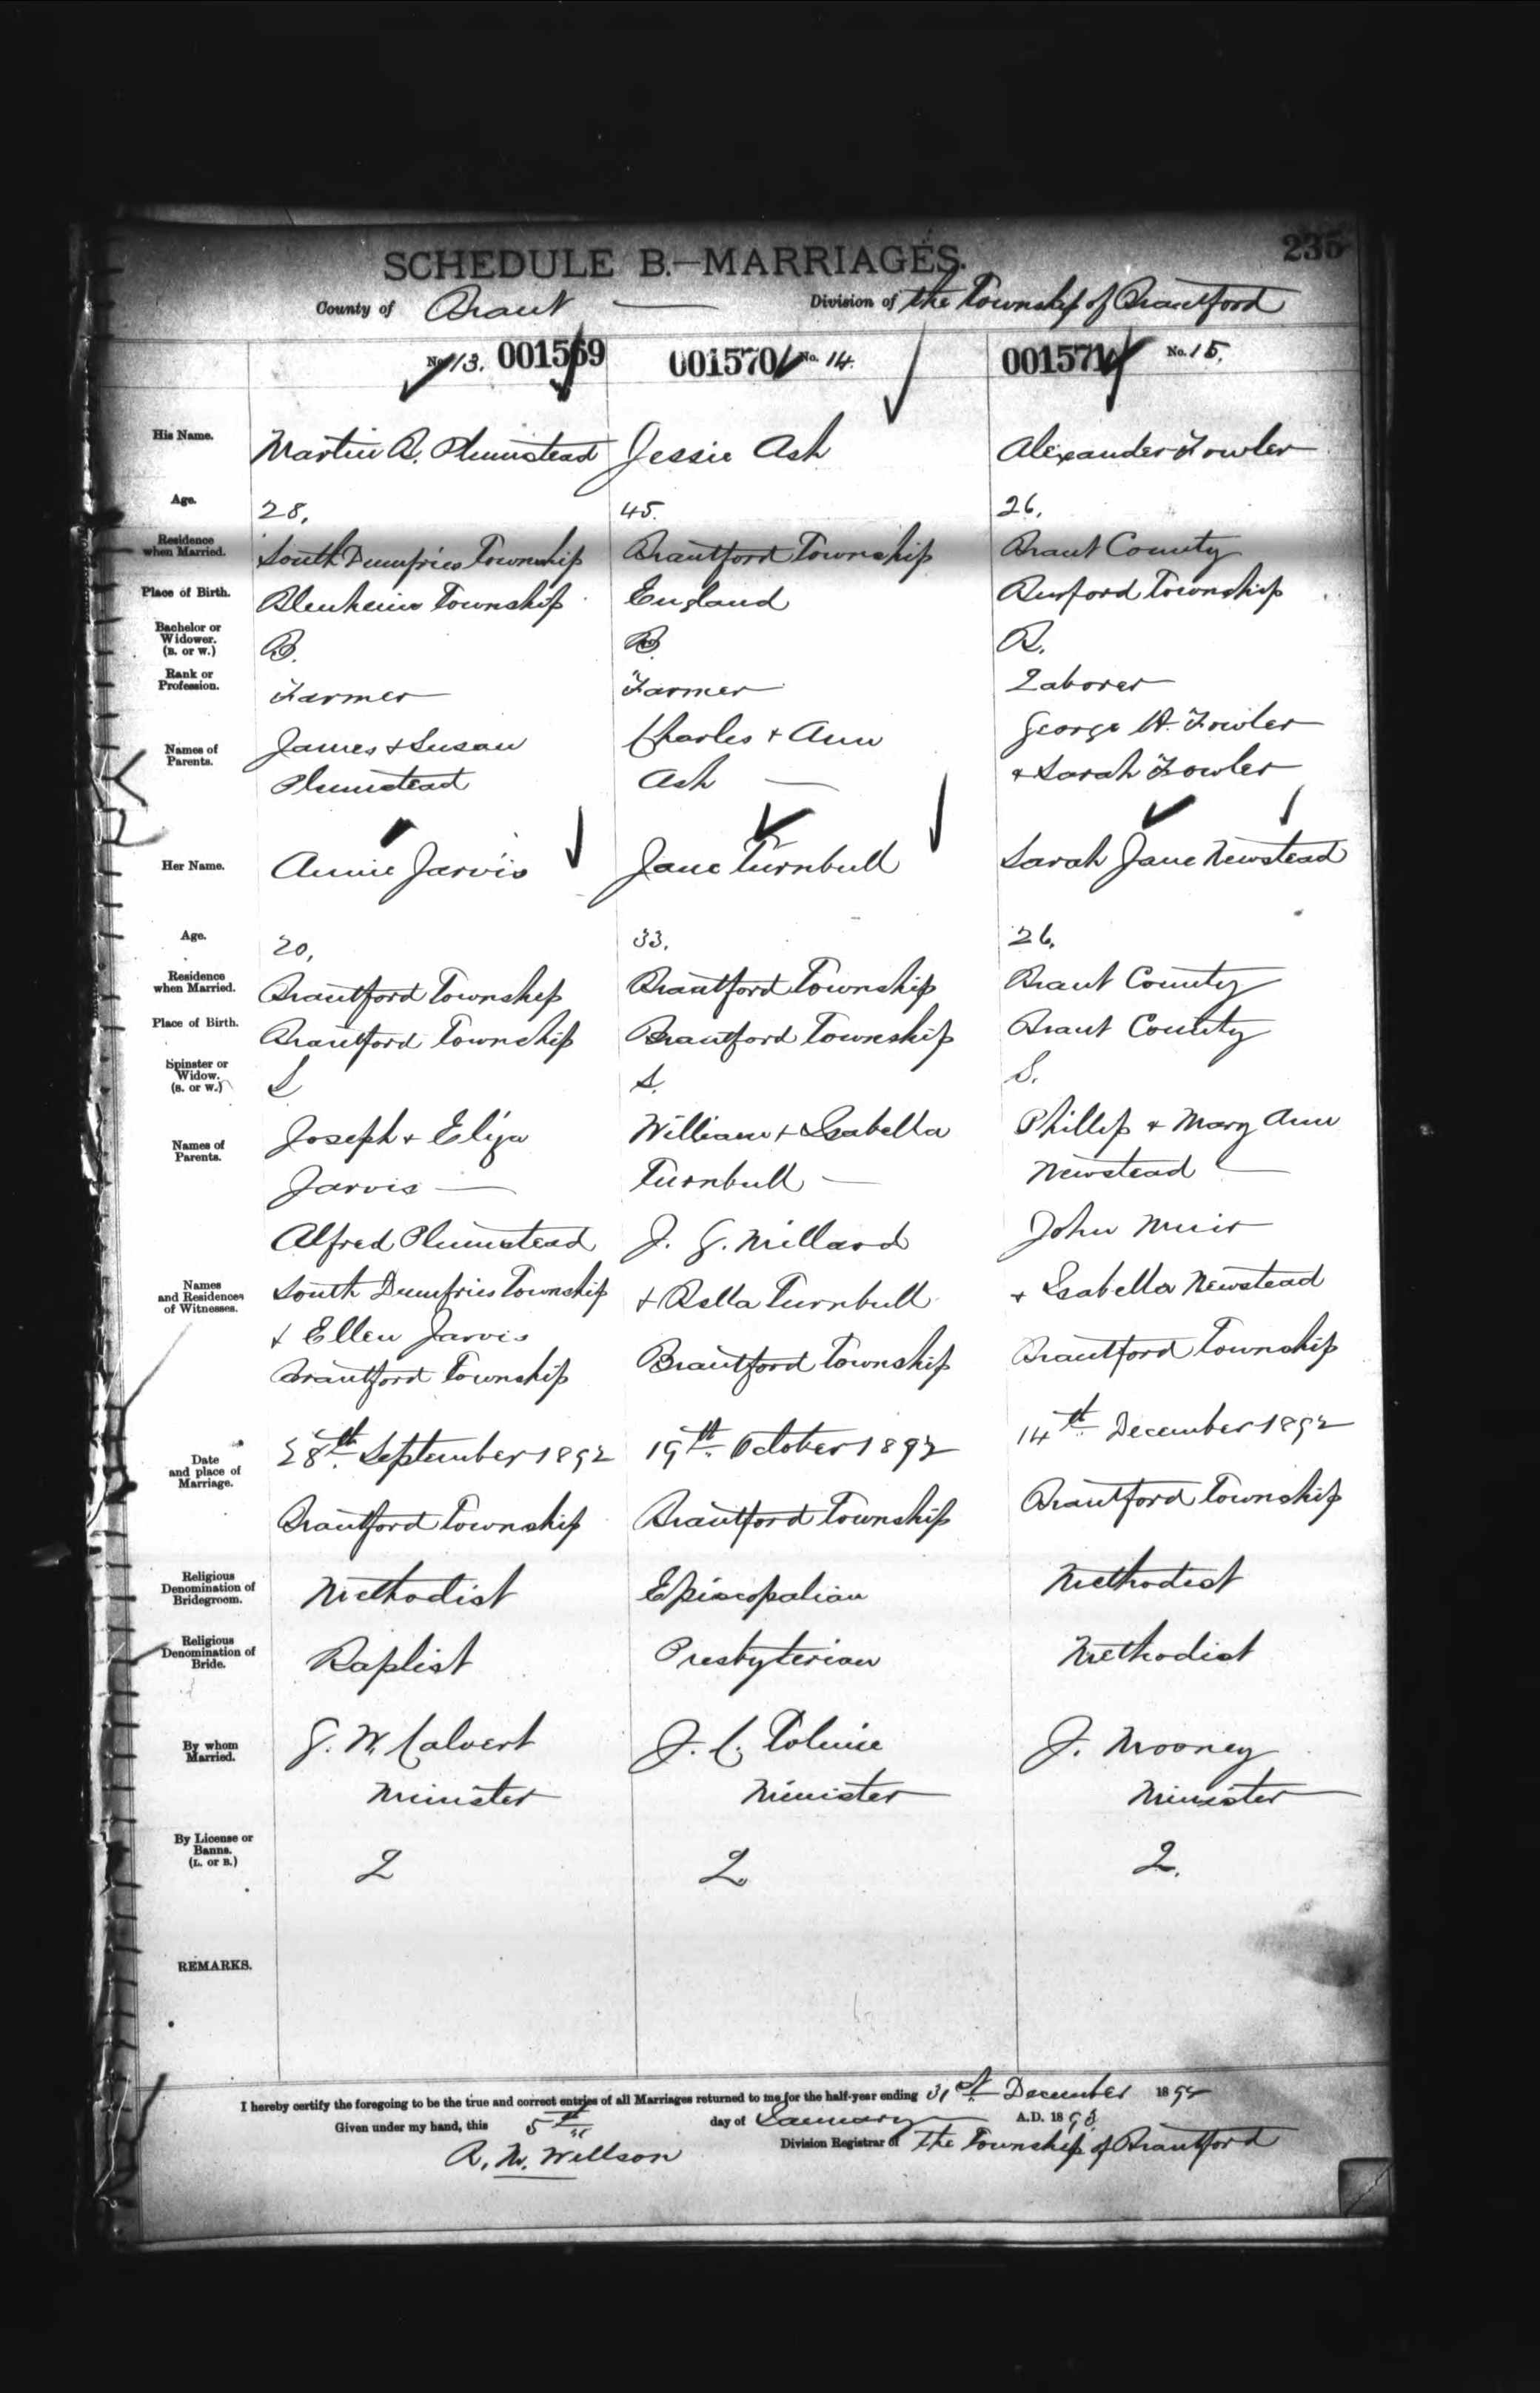 235
SCHEDULE B.—MARRIAGES.
County of Brant — Division of the Township of Brantford
No. 13. 001569 001570 No. 14. 001571 No. 15.
His Name. Martin B. Plumstead Jessie Ash Alexander Fowler
Age. 28. 45. 26.
Residence when Married. South Dumfries Township Brantford Township Brant County
Place of Birth. Blenheim Township England Burford Township
Bachelor or Widower. (B. or W.) B. B. B.
Rank or Profession. Farmer Farmer Laborer
Names of Parents. James & Susan Charles + Ann George H. Fowler
Plumstead Ash — & Sarah Fowler
Her Name. Annie Jarvis Jane Turnbull Sarah Jane Newstead
Age. 20. 33. 26.
Residence when Married. Brantford Township Brantford Township Brant County
Place of Birth. Brantford Township Brantford Township Brant County
Spinster or Widow. (S. or W.) S S. S.
Names of Parents. Joseph + Eliza William + Isabella Phillip + Mary Ann
Jarvis — Turnbull — Newstead —
Names and Residences of Witnesses. Alfred Plumstead J. G. Millard John Muir
South Dumfries Township + Bella Turnbull + Isabella Newstead
& Ellen Jarvis Brantford Township Brantford Township
Brantford Township
Date and place of Marriage. 28th September 1892 19th October 1892 14th December 1892
Brantford Township Brantford Township Brantford Township
Religious Denomination of Bridegroom. Methodist Episcopalian Methodist
Religious Denomination of Bride. Baptist Presbyterian Methodist
By whom Married. G. W. Calvert J. C. J. Mooney
Minister Minister Minister
By License or Banns. (L. or B.) L L L.
REMARKS.
I hereby certify the foregoing to be the true and correct entries of all Marriages returned to me for the half-year ending 31st December 1892
Given under my hand, this 5th day of January A.D. 1893
Division Registrar of the Township of Brantford
Willson